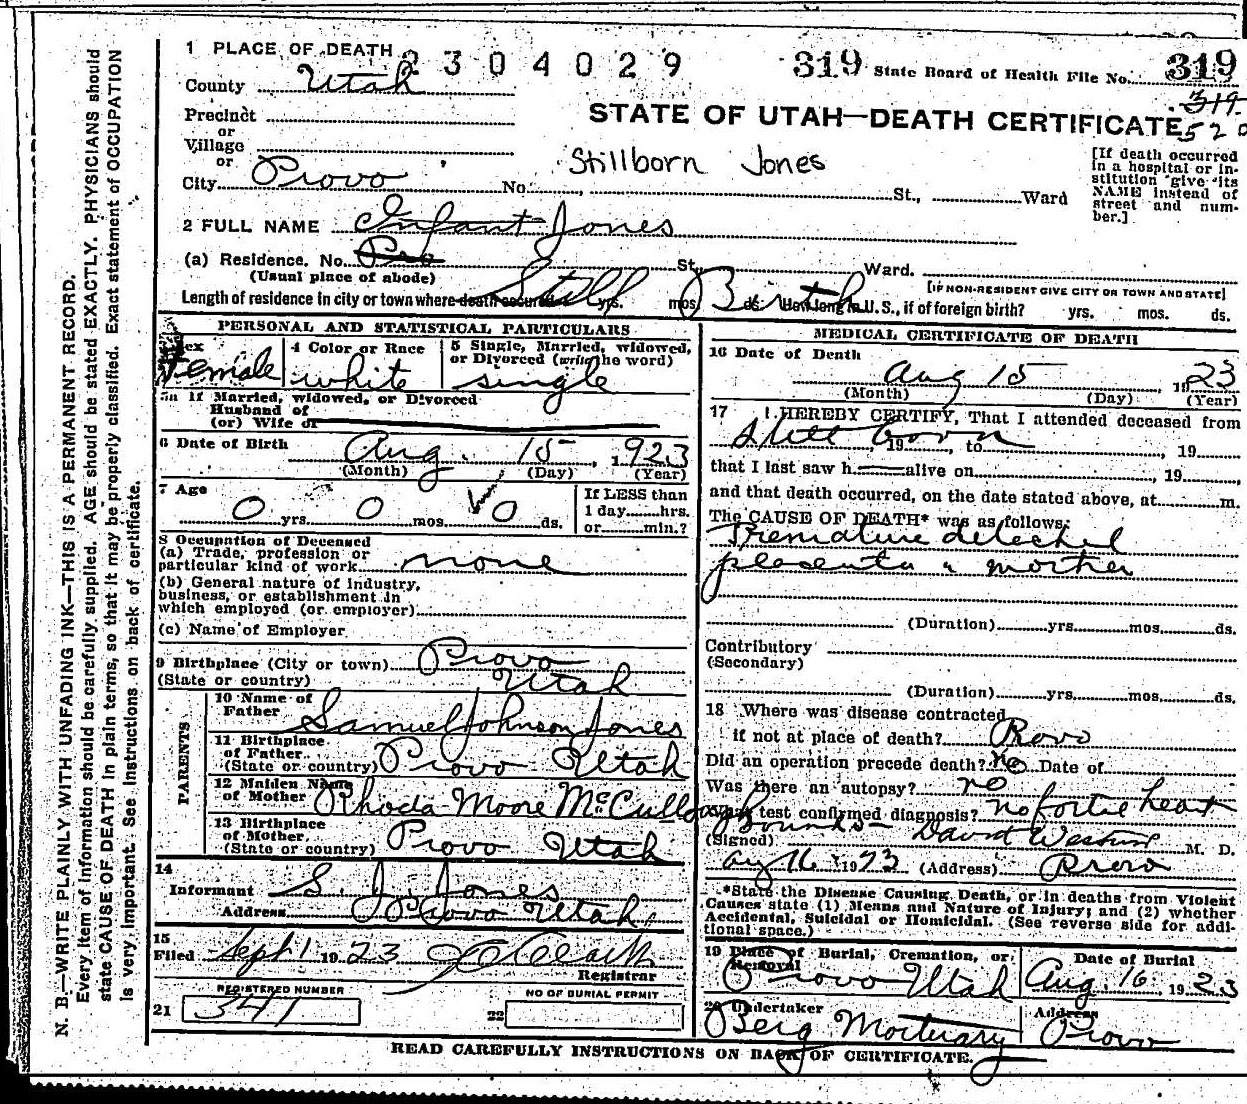 1 PLACE OF DEATH 2304029 319 State Board of Health File No. 319
County Utah 319
STATE OF UTAH—DEATH CERTIFICATE 520
Precinct
or
Village
or
City Provo No. St., Ward
Stillborn Jones
[If death occurred in a hospital or institution give its NAME instead of street and number.]
2 FULL NAME Infant Jones
(a) Residence. No. Pro St., Ward.
(Usual place of abode)
[IF NON-RESIDENT GIVE CITY OR TOWN AND STATE]
Length of residence in city or town where death occurred yrs. mos. ds. How long in U.S., if of foreign birth? yrs. mos. ds.
Still Birth
PERSONAL AND STATISTICAL PARTICULARS
Sex Female
4 Color or Race white
5 Single, Married, widowed, or Divorced (write the word) single
5a If Married, widowed, or Divorced
Husband of
(or) Wife of
6 Date of Birth Aug. 15, 1923
(Month) (Day) (Year)
7 Age 0 yrs. 0 mos. 0 ds.
If LESS than
1 day hrs.
or min.?
8 Occupation of Deceased
(a) Trade, profession or
particular kind of work none
(b) General nature of industry,
business, or establishment in
which employed (or employer)
(c) Name of Employer
9 Birthplace (City or town) Provo
(State or country) Utah
PARENTS
10 Name of
Father Samuel Johnson Jones
11 Birthplace
of Father
(State or country) Provo Utah
12 Maiden Name
of Mother Rhoda Moore McCullough
13 Birthplace
of Mother
(State or country) Provo Utah
14
Informant S. J. Jones
Address Provo Utah
15
Filed Sept 1 1923
Registrar
REGISTERED NUMBER
21 341
NO OF BURIAL PERMIT
22
MEDICAL CERTIFICATE OF DEATH
16 Date of Death
Aug 15 1923
(Month) (Day) (Year)
17 I HEREBY CERTIFY, That I attended deceased from
Still born, 19, to, 19
that I last saw h alive on, 19
and that death occurred, on the date stated above, at m.
The CAUSE OF DEATH* was as follows:
Premature detached
placenta mother
(Duration) yrs. mos. ds.
Contributory
(Secondary)
(Duration) yrs. mos. ds.
18 Where was disease contracted
if not at place of death? Provo
Did an operation precede death? no Date of
Was there an autopsy? no
What test confirmed diagnosis? no fortie heart
sounds
(Signed) David Westwood M. D.
Aug 16 1923 (Address) Provo
*State the Disease Causing Death, or in deaths from Violent
Causes state (1) Means and Nature of Injury; and (2) whether
Accidental, Suicidal or Homicidal. (See reverse side for addi-
tional space.)
19 Place of Burial, Cremation, or
Removal Provo Utah
Date of Burial
Aug. 16 1923
20 Undertaker
Berg Mortuary
Address
Provo
READ CAREFULLY INSTRUCTIONS ON BACK OF CERTIFICATE.
N. B.—WRITE PLAINLY WITH UNFADING INK—THIS IS A PERMANENT RECORD.
Every item of information should be carefully supplied. AGE should be stated EXACTLY. PHYSICIANS should
state CAUSE OF DEATH in plain terms, so that it may be properly classified. Exact statement of OCCUPATION
is very important. See instructions on back of certificate.